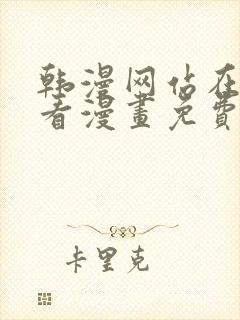 韩漫网站在
看漫畫免費
卡里克